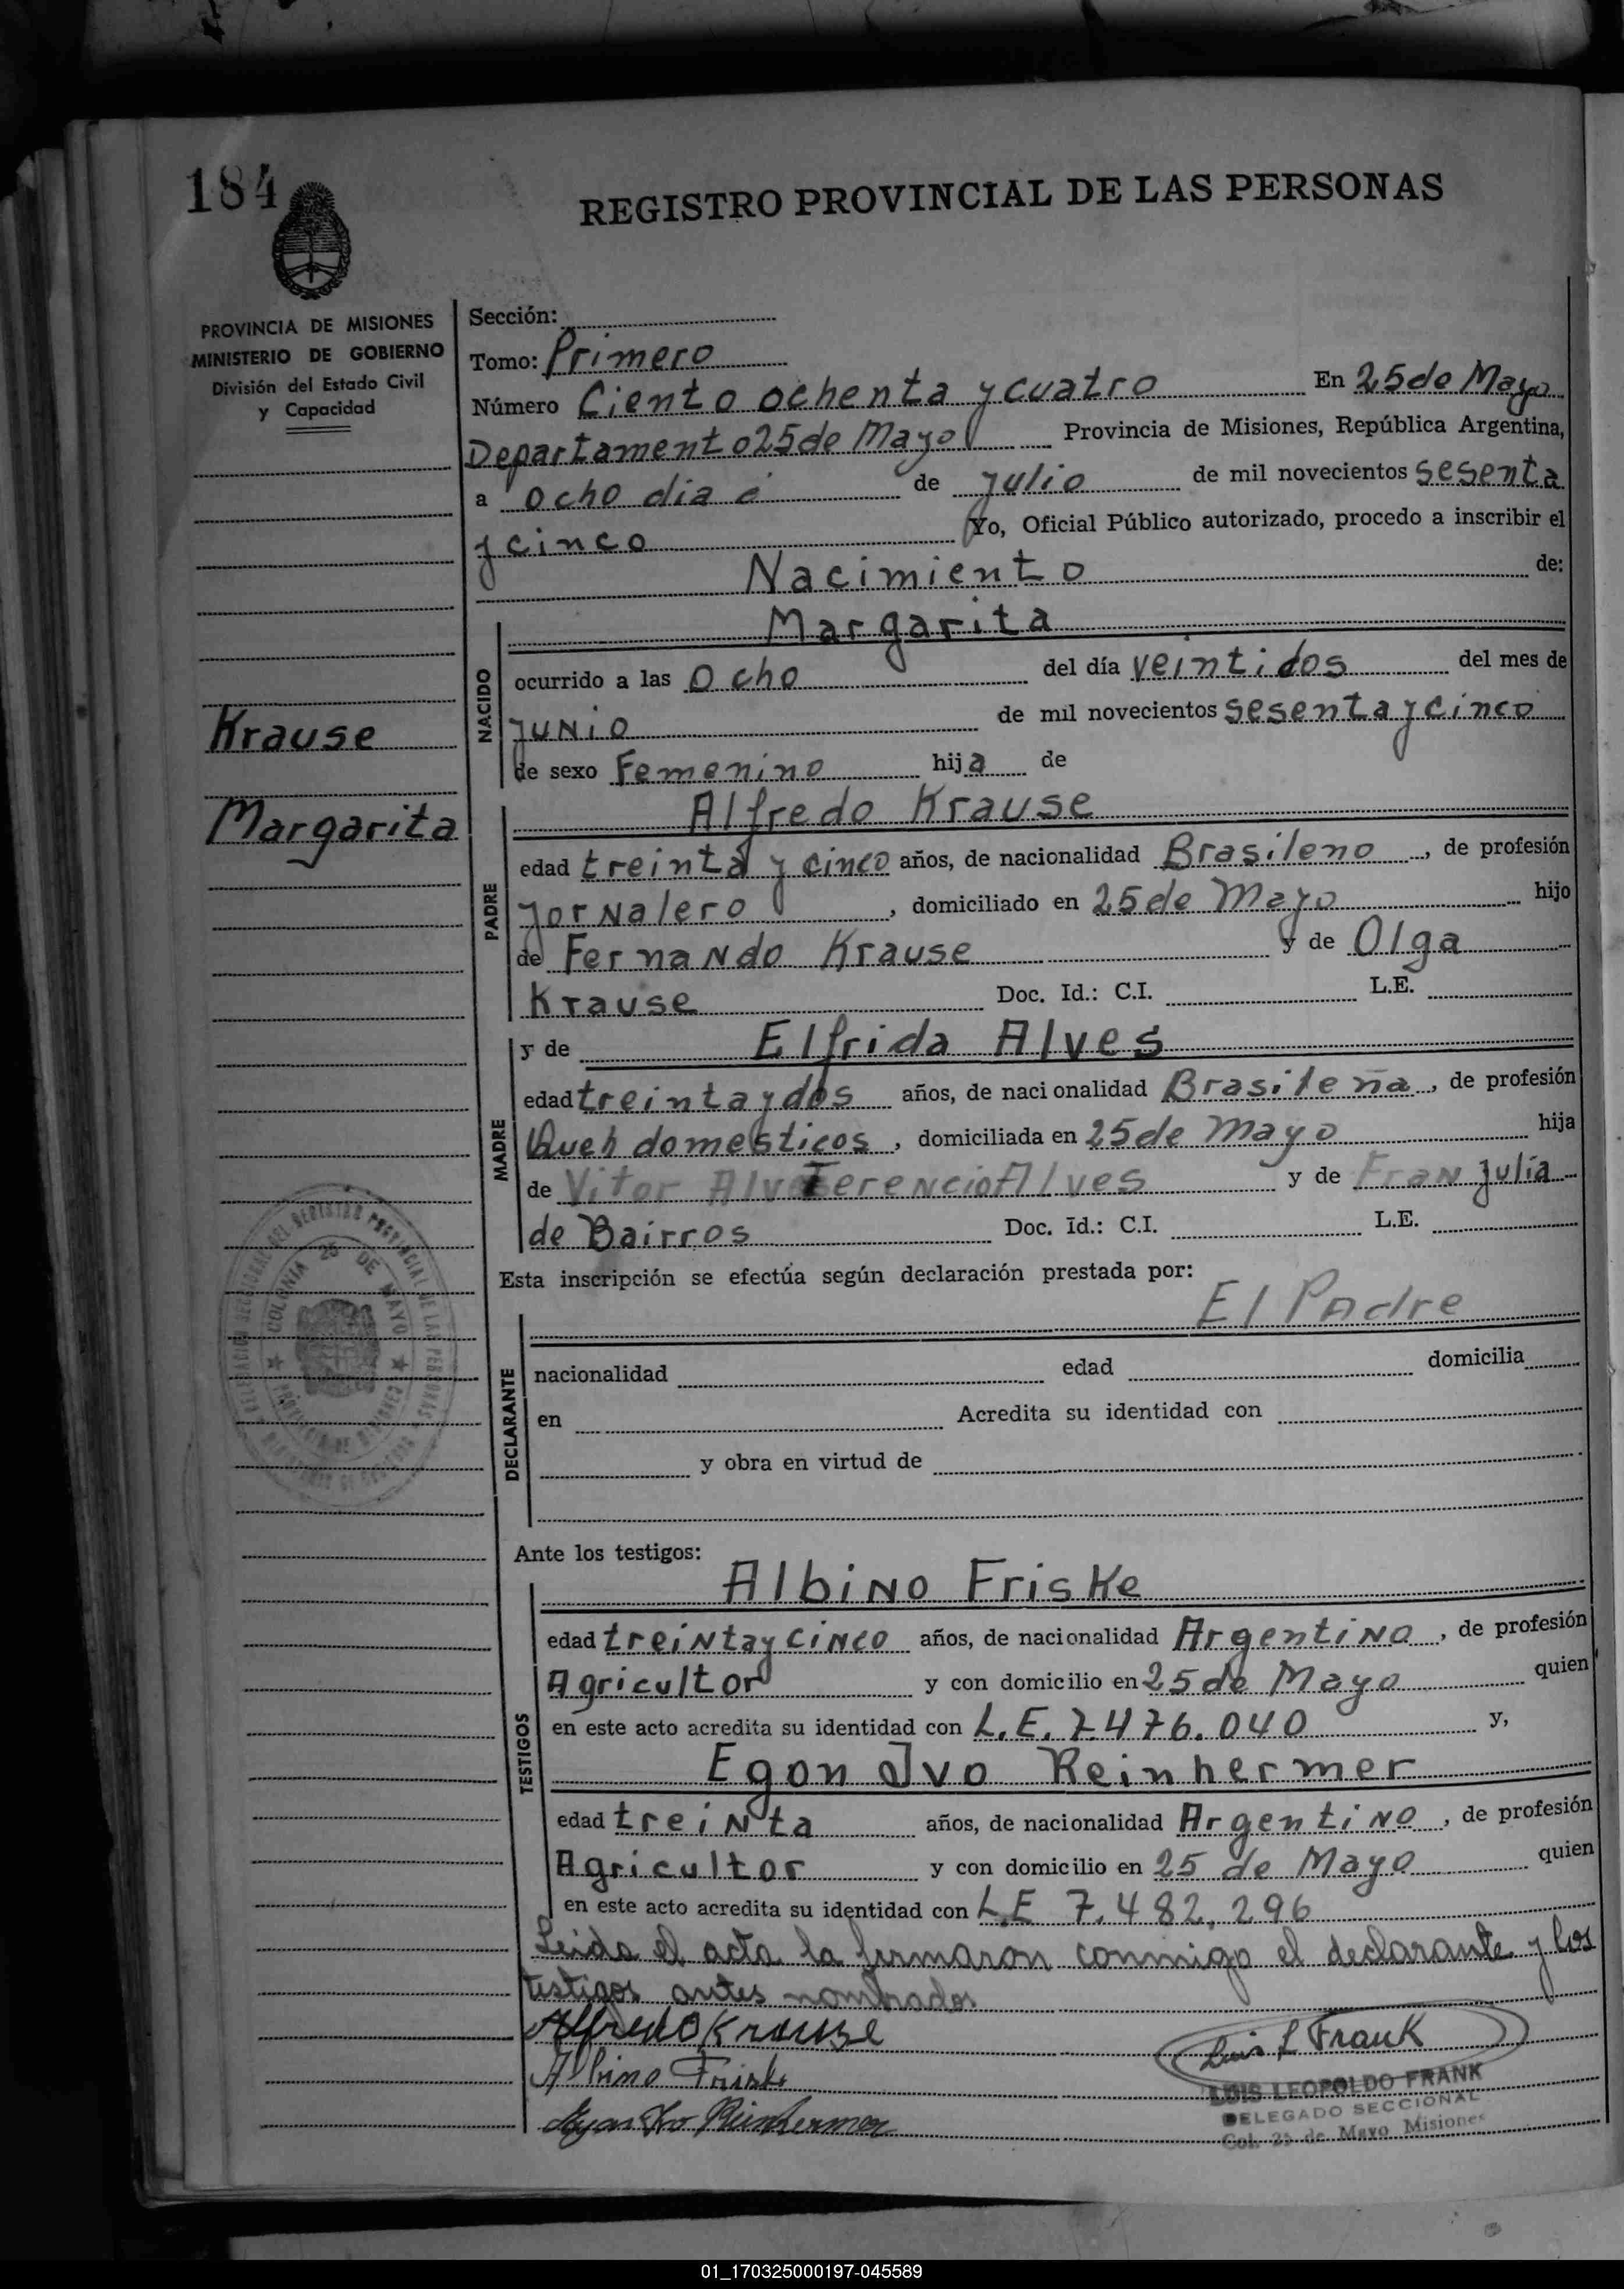 184
REGISTRO PROVINCIAL DE LAS PERSONAS
PROVINCIA DE MISIONES
MINISTERIO DE GOBIERNO
División del Estado Civil
y Capacidad
Krause
Margarita
Sección:
Tomo: Primero
Número Ciento ochenta y cuatro En 25 de Mayo
Departamento 25 de Mayo Provincia de Misiones, República Argentina,
a ocho dia de julio de mil novecientos sesenta
y cinco Yo, Oficial Público autorizado, procedo a inscribir el
Nacimiento de:
NACIDO
Margarita
ocurrido a las Ocho del día veintidos del mes de
junio de mil novecientos sesenta y cinco
de sexo Femenino hija de
PADRE
Alfredo Krause
edad treinta y cinco años, de nacionalidad Brasileno, de profesión
Jornalero, domiciliado en 25 de Mayo hijo
de Fernando Krause y de Olga
Krause Doc. Id.: C.I. L.E.
MADRE
y de Elfrida Alves
edad treinta y dos años, de nacionalidad Brasileña, de profesión
Queh domesticos, domiciliada en 25 de Mayo hija
de Vitor Alve Terencio Alves y de Fran Julia
de Bairros Doc. Id.: C.I. L.E.
Esta inscripción se efectúa según declaración prestada por:
DECLARANTE
El Padre
nacionalidad edad domicilia
en Acredita su identidad con
y obra en virtud de
Ante los testigos:
TESTIGOS
Albino Friske
edad treinta y cinco años, de nacionalidad Argentino, de profesión
Agricultor y con domicilio en 25 de Mayo quien
en este acto acredita su identidad con L.E. 7.476.040 y,
Egon Ivo Reinhermer
edad treinta años, de nacionalidad Argentino, de profesión
Agricultor y con domicilio en 25 de Mayo quien
en este acto acredita su identidad con L.E 7.482,296
Leida el acta la firmaron conmigo el declarante y los
testigos antes nombrados
Alfredo Krause
Albino Friske
Egon Ivo Reinhermer
Luis L Frank
LUIS LEOPOLDO FRANK
DELEGADO SECCIONAL
Col. 25 de Mayo Misiones
COLONIA 25 DE MAYO
01_170325000197-045589